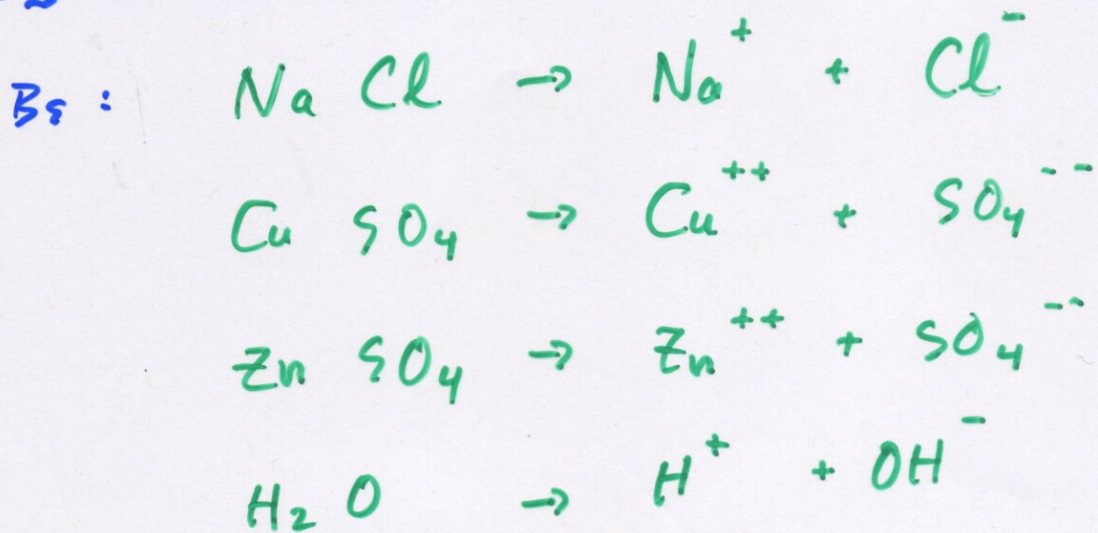 Bs : Na Cl → Na⁺ + Cl⁻
Cu SO₄ → Cu⁺⁺ + SO₄⁻⁻
Zn SO₄ → Zn⁺⁺ + SO₄⁻⁻
H₂ O → H⁺ + OH⁻